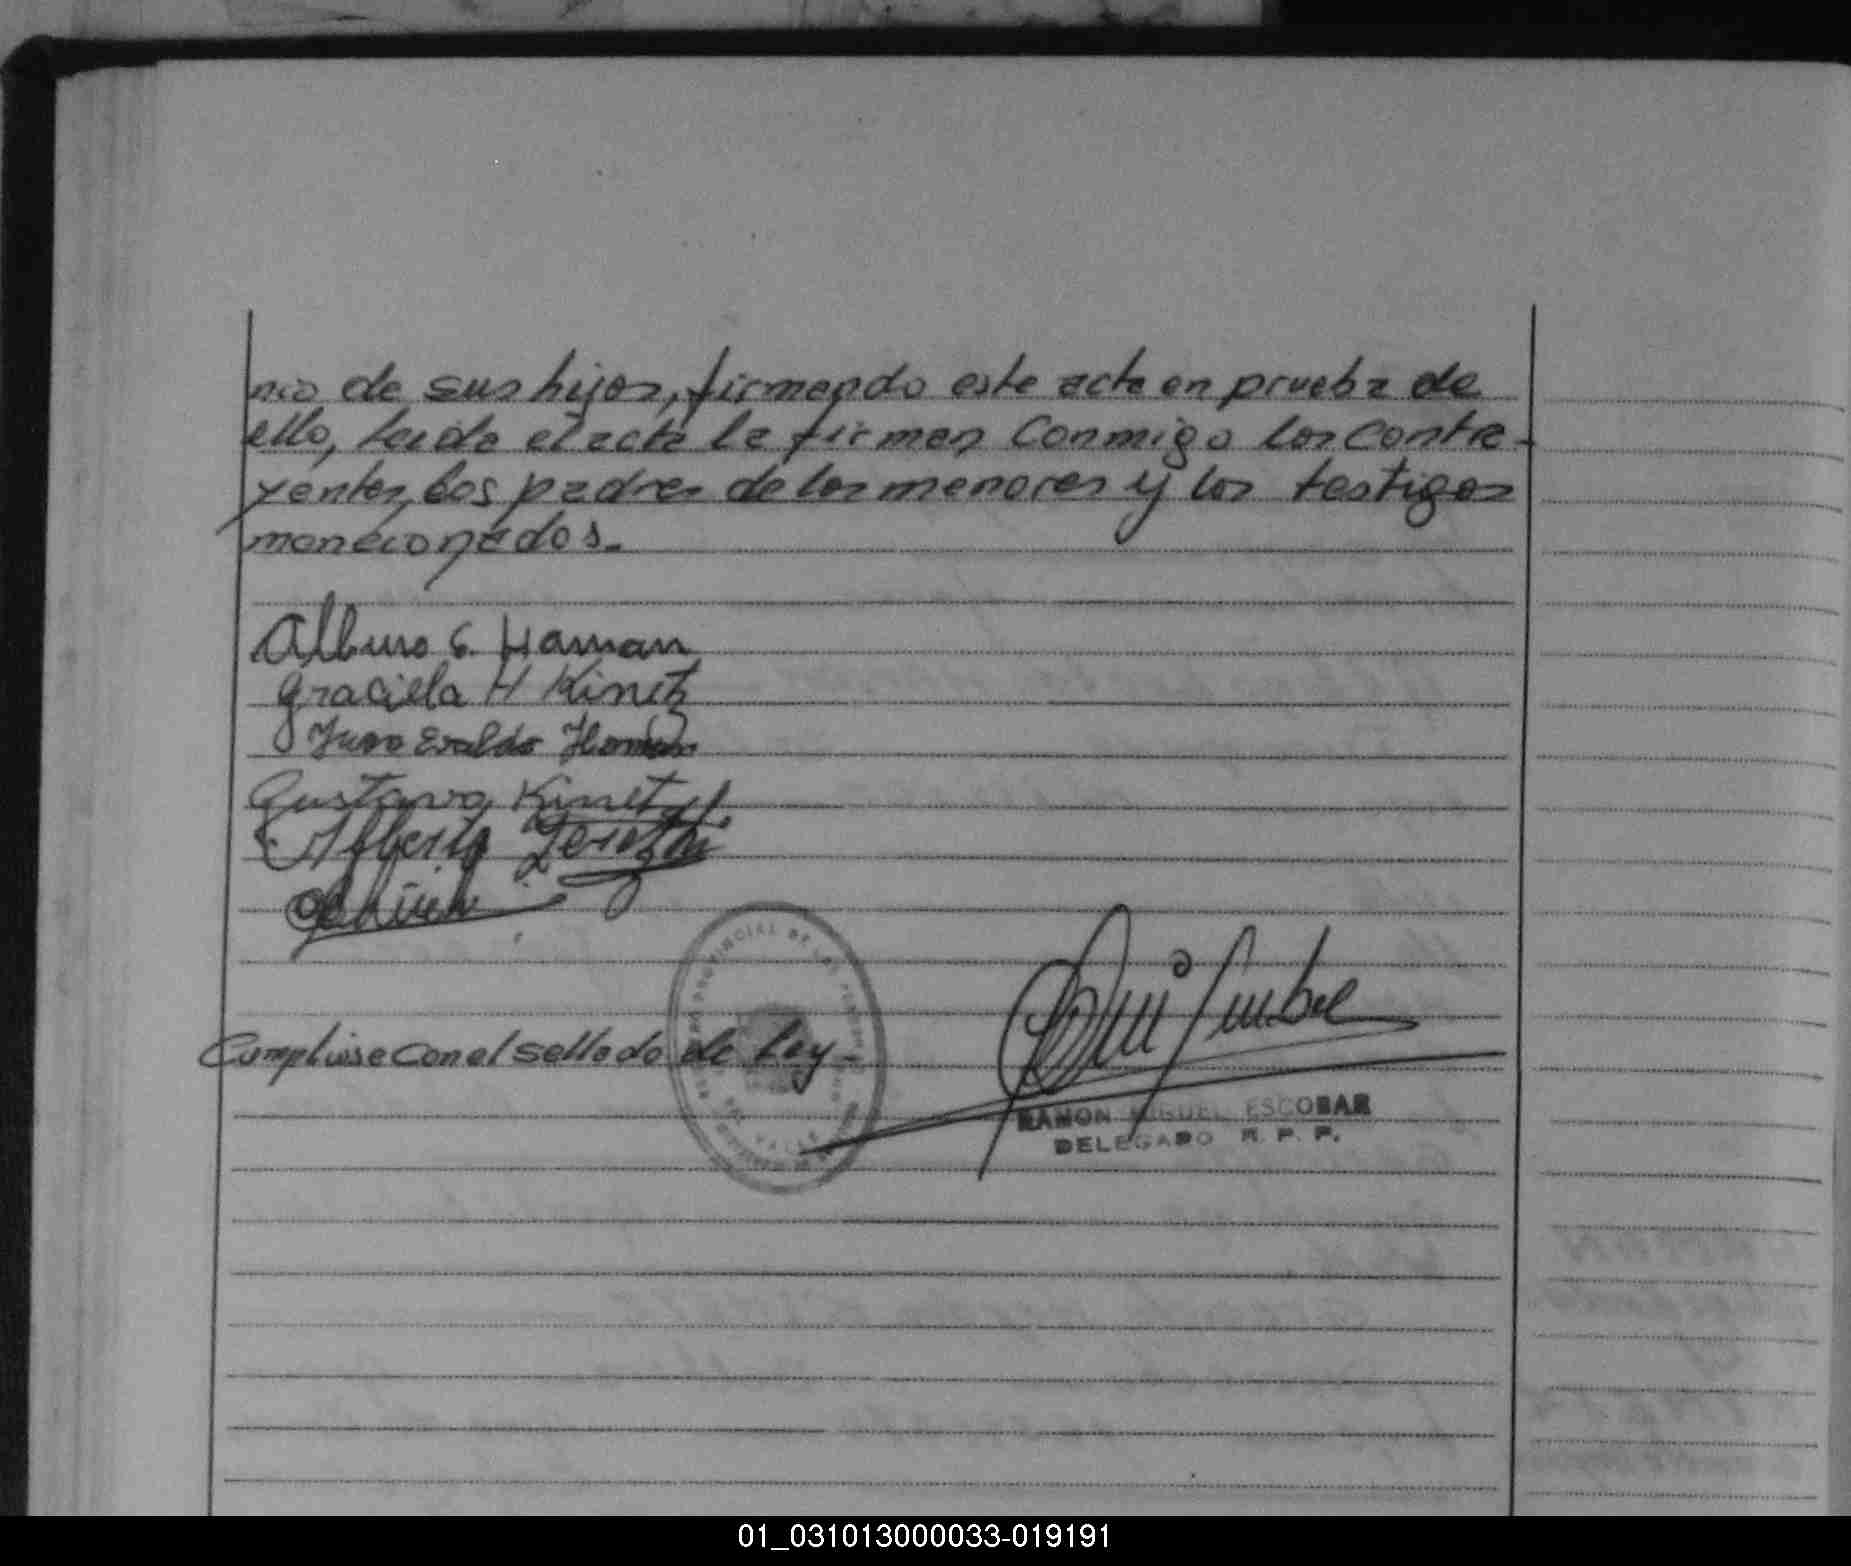 nio de sus hijos, firmando este acta en prueba de
ello, leida el acta la firman conmigo los contra-
yentes, los padres de los menores y los testigos
mencionados.
Albino G. Haman
Graciela H Kinetz
Juan Evaldo Homan
Gustavo Kinetz
Alberto
Cumpliose con el sellado de Ley-
RAMON MIGUEL ESCOBAR
DELEGADO R. P. P.
01_031013000033-019191